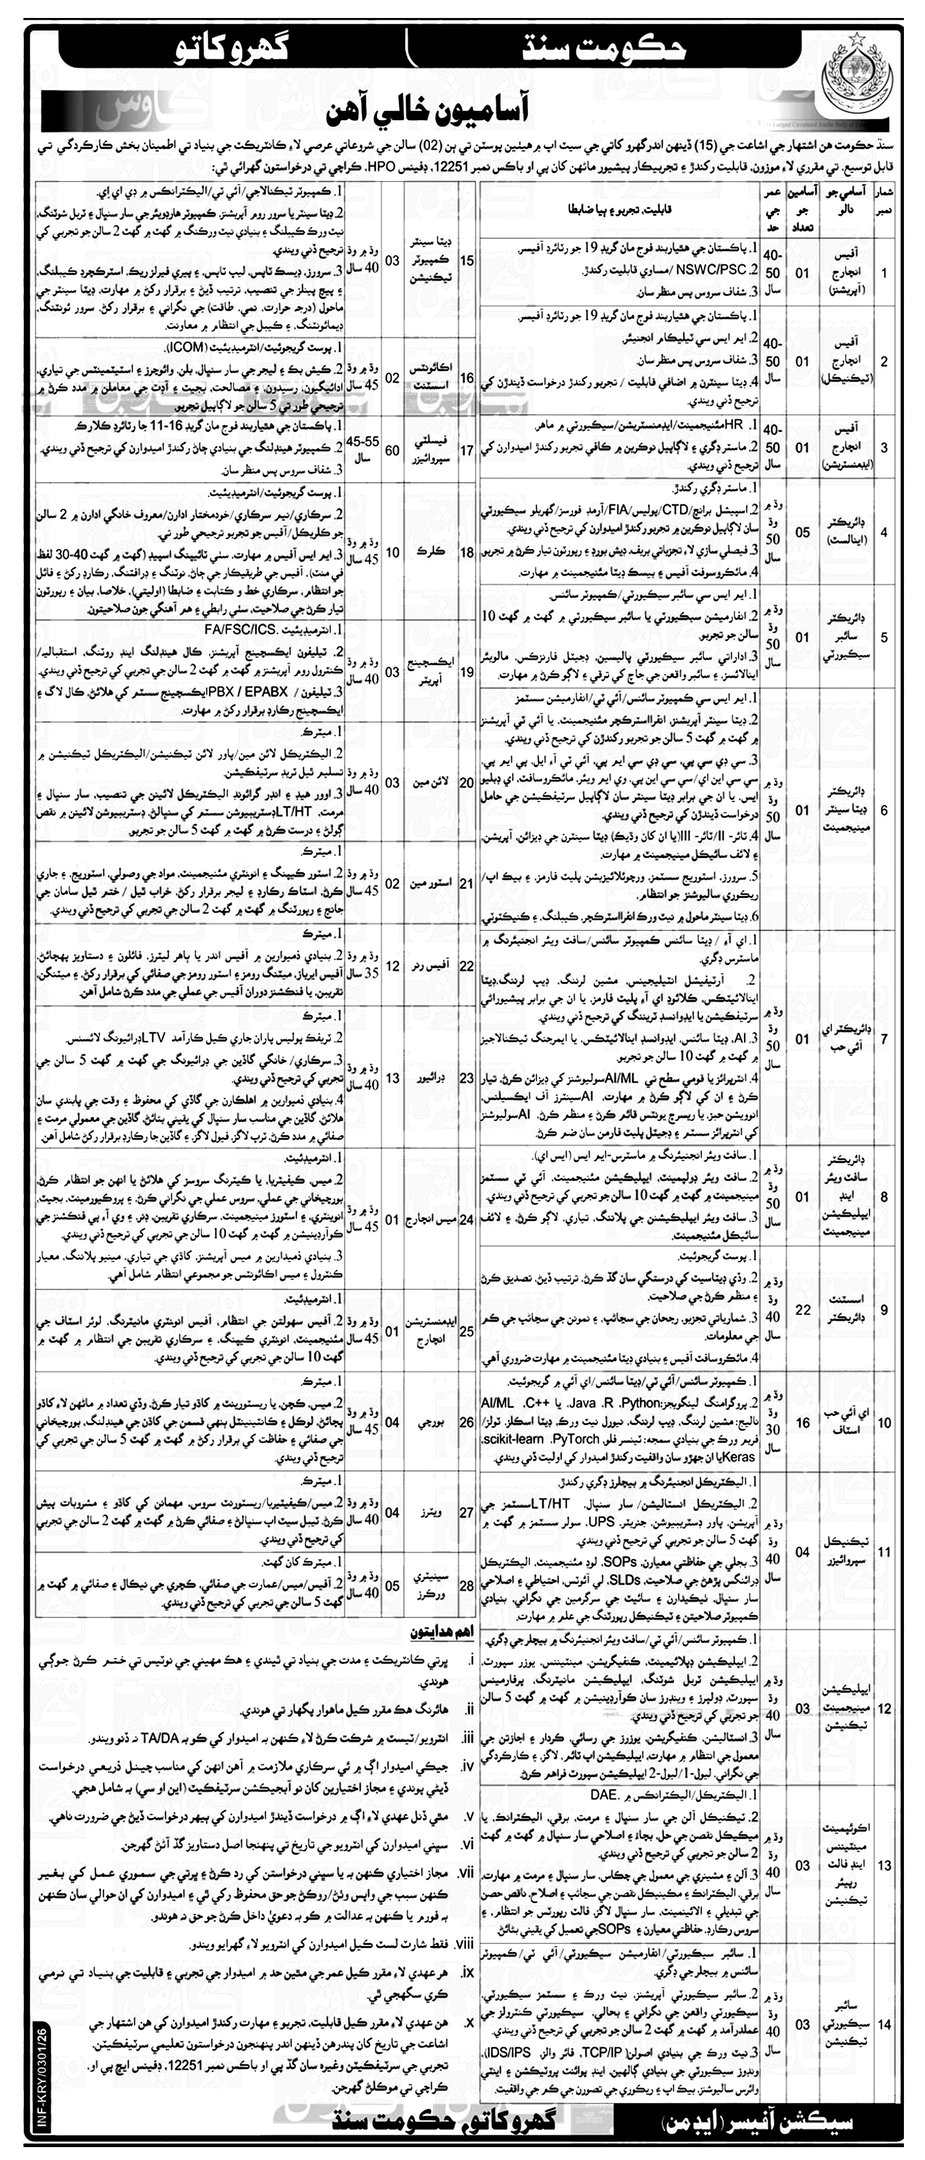 حڪومت سنڌ
گھرو کاتو
آساميون خالي آهن
سنڌ حڪومت هن اشتهار جي اشاعت جي (15) ڏينهن اندر گهرو کاتي جي سيٽ اپ ۾ هيٺين پوسٽن تي ٻن (02) سالن جي شروعاتي عرصي لاءِ ڪانٽريڪٽ جي بنياد تي اطمينان بخش ڪارڪردگي تي
قابل توسيع، تي مقرري لاءِ موزون، قابليت رکندڙ ۽ تجربيڪار پيشيور ماڻهن کان پي او باڪس نمبر 12251، ڊفينس HPO، ڪراچي تي درخواستون گهرائي ٿي:
شمار نمبر
آسامي جو نالو
آسامين جو تعداد
عمر جي حد
قابليت، تجربو ۽ ٻيا ضابطا
1
آفيس انچارج (آپريشنز)
01
40-50 سال
1. پاڪستان جي هٿياربند فوج مان گريڊ 19 جو رٽائرڊ آفيسر.
2. NSWC/PSC /مساوي قابليت رکندڙ.
3. شفاف سروس پس منظر سان.
2
آفيس انچارج (ٽيڪنيڪل)
01
40-50 سال
1. پاڪستان جي هٿياربند فوج مان گريڊ 19 جو رٽائرڊ آفيسر.
2. ايم ايس سي ٽيليڪام انجنيئر.
3. شفاف سروس پس منظر سان.
4. ڊيٽا سينٽرن ۾ اضافي قابليت / تجربو رکندڙ درخواست ڏيندڙن کي
ترجيح ڏني ويندي.
3
آفيس انچارج (ايڊمنسٽريشن)
01
40-50 سال
1. HR مئنيجمينٽ/ايڊمنسٽريشن/سيڪيورٽي ۾ ماهر.
2. ماسٽر ڊگري ۽ لاڳاپيل نوڪرين ۾ ڪافي تجربو رکندڙ اميدوارن کي
ترجيح ڏني ويندي.
4
ڊائريڪٽر (اينالسٽ)
05
وڌ ۾ وڌ 50 سال
1. ماسٽر ڊگري رکندڙ.
2. اسپيشل برانچ/CTD/پوليس/FIA/آرمڊ فورسز/گهريلو سيڪيورٽي
سان لاڳاپيل نوڪرين ۾ تجربو رکندڙ اميدوارن کي ترجيح ڏني ويندي.
3. فيصلي سازي لاءِ تجزياتي بريف، ڊيش بورڊ ۽ رپورٽون تيار ڪرڻ ۾ تجربو.
4. مائڪروسوفٽ آفيس ۽ بيسڪ ڊيٽا مئنيجمينٽ ۾ مهارت.
5
ڊائريڪٽر سائبر سيڪيورٽي
01
وڌ ۾ وڌ 50 سال
1. ايم ايس سي سائبر سيڪيورٽي/ڪمپيوٽر سائنس.
2. انفارميشن سيڪيورٽي يا سائبر سيڪيورٽي ۾ گهٽ ۾ گهٽ 10
سالن جو تجربو.
3. اداراتي سائبر سيڪيورٽي پاليسين، ڊجيٽل فارنزڪس، مالويئر
اينالائسز، ۽ سائبر واقعن جي جاچ کي ترقي ۽ لاڳو ڪرڻ ۾ مهارت.
6
ڊائريڪٽر ڊيٽا سينٽر مينيجمينٽ
01
وڌ ۾ وڌ 50 سال
1. ايم ايس سي ڪمپيوٽر سائنس/آئي ٽي/انفارميشن سسٽمز
2. ڊيٽا سينٽر آپريشنز، انفرااسٽرڪچر مئنيجمينٽ، يا آئي ٽي آپريشنز
۾ گهٽ ۾ گهٽ 5 سالن جو تجربو رکندڙن کي ترجيح ڏني ويندي.
3. سي ڊي سي پي، سي ڊي سي ايم پي، آئي ٽي آءِ ايل، پي ايم پي،
سي سي اين اي/سي سي اين پي، وي ايم ويئر، مائڪروسافٽ، اي ڊبليو
ايس، يا ان جي برابر ڊيٽا سينٽر سان لاڳاپيل سرٽيفڪيشن جي حامل
درخواست ڏيندڙن کي ترجيح ڏني ويندي.
4. ٽائر-II/ٽائر-III(يا ان کان وڌيڪ) ڊيٽا سينٽرن جي ڊيزائن، آپريشن،
۽ لائف سائيڪل مينيجمينٽ ۾ مهارت.
5. سرورز، اسٽوريج سسٽمز، ورچوئلائيزيشن پليٽ فارمز، ۽ بيڪ اپ/
ريڪوري سالوشنز جو انتظام.
6. ڊيٽا سينٽر ماحول ۾ نيٽ ورڪ انفرااسٽرڪچر، ڪيبلنگ، ۽ ڪنيڪٽوٽي.
7
ڊائريڪٽر اي آئي حب
01
وڌ ۾ وڌ 50 سال
1. اي آءِ / ڊيٽا سائنس ڪمپيوٽر سائنس/سافٽ ويئر انجنيئرنگ ۾
ماسٽرس ڊگري.
2. آرٽيفشل انٽيليجينس، مشين لرننگ، ڊيپ لرننگ، ڊيٽا
اينالائيٽڪس، ڪلائوڊ اي آءِ پليٽ فارمز، يا ان جي برابر پيشيوراڻي
سرٽيفڪيشن يا ايڊوانسڊ ٽريننگ کي ترجيح ڏني ويندي.
3. AI، ڊيٽا سائنس، ايڊوانسڊ اينالائيٽڪس، يا ايمرجنگ ٽيڪنالاجيز
۾ گهٽ ۾ گهٽ 10 سالن جو تجربو.
4. انٽرپرائز يا قومي سطح تي AI/ML سولوشنز کي ڊيزائن ڪرڻ، تيار
ڪرڻ ۽ ان کي لاڳو ڪرڻ ۾ مهارت. AI سينٽرز آف ايڪسيلنس،
انوويشن حبز، يا ريسرچ يونٽس قائم ڪرڻ ۽ منظم ڪرڻ. AI سولوشنز
کي انٽرپرائز سسٽم ۽ ڊجيٽل پليٽ فارمن سان ضم ڪرڻ.
8
ڊائريڪٽر سافٽ ويئر اينڊ ايپليڪيشن مينيجمينٽ
01
وڌ ۾ وڌ 50 سال
1. سافٽ ويئر انجنيئرنگ ۾ ماسٽرس-ايم ايس (ايس اي).
2. سافٽ ويئر ڊولپمينٽ، ايپليڪيشن مئنيجمينٽ، آئي ٽي سسٽمز
مينيجمينٽ ۾ گهٽ ۾ گهٽ 10 سالن جو تجربي کي ترجيح ڏني ويندي.
3. سافٽ ويئر ايپليڪيشنن جي پلاننگ، تياري، لاڳو ڪرڻ، ۽ لائف
سائيڪل مئنيجمينٽ.
9
اسسٽنٽ ڊائريڪٽر
22
وڌ ۾ وڌ 40 سال
1. پوسٽ گريجوئيٽ.
2. وڏي ڊيٽاسيٽ کي درستگي سان گڏ ڪرڻ، ترتيب ڏيڻ، تصديق ڪرڻ
۽ منظم ڪرڻ جي صلاحيت.
3. شمارياتي تجزيو، رجحان جي سڃاڻپ، ۽ نمونن جي سڃاڻپ جي ڪم
جي معلومات.
4. مائڪروسافٽ آفيس ۽ بنيادي ڊيٽا مئنيجمينٽ ۾ مهارت ضروري آهي.
10
اي آئي حب اسٽاف
16
وڌ ۾ وڌ 30 سال
1. ڪمپيوٽر سائنس/آئي ٽي/ڊيٽا سائنس/اي آئي ۾ گريجوئيٽ.
2. پروگرامنگ لينگويجز: Python، R، Java، يا C++، AI/ML
ناليج: مشين لرننگ، ڊيپ لرننگ، نيورل نيٽ ورڪ، ڊيٽا اسڪلز، ٽولز/
فريم ورڪ جي بنيادي سمجهه: ٽينسر فلو، PyTorch، scikit-learn،
Keras يا ان جهڙو سان واقفيت رکندڙ اميدوار کي اوليت ڏني ويندي.
11
ٽيڪنيڪل سپروائيزر
04
وڌ ۾ وڌ 40 سال
1. اليڪٽريڪل انجنيئرنگ ۾ بيچلرز ڊگري رکندڙ.
2. اليڪٽريڪل انسٽاليشن/ سار سنڀال، LT/HT سسٽمز جي
آپريشن، پاور ڊسٽريبيوشن، جنريٽر، UPS، سولر سسٽمز ۾ گهٽ ۾
گهٽ 5 سالن جو تجربو رکندڙ کي ترجيح ڏني ويندي.
3. بجلي جي حفاظتي معيارن، SOPs، لوڊ مئنيجمينٽ، اليڪٽريڪل
ڊرائنگس پڙهڻ جي صلاحيت، SLDs، لي آئوٽس، احتياطي ۽ اصلاحي
سار سنڀال، ٺيڪيدارن ۽ سائيٽ جي سرگرمين جي نگراني، بنيادي
ڪمپيوٽر صلاحيتن ۽ ٽيڪنيڪل رپورٽنگ جي علم ۾ مهارت.
12
ايپليڪيشن مينيجمينٽ ٽيڪنيشن
03
وڌ ۾ وڌ 40 سال
1. ڪمپيوٽر سائنس/آئي ٽي/سافٽ ويئر انجنيئرنگ ۾ بيچلر جي ڊگري.
2. ايپليڪيشن ڊپلائيمينٽ، ڪنفيگريشن، مينٽيننس، يوزر سپورٽ،
ايپليڪيشن ٽربل شوٽنگ، ايپليڪيشن مانيٽرنگ، پرفارمينس
سپورٽ، ڊولپرز ۽ وينڊرز سان ڪوآرڊينيشن ۾ گهٽ ۾ گهٽ 5 سالن
جو تجربي کي ترجيح ڏني ويندي.
3. انسٽاليشن، ڪنفيگريشن، يوزرز جي رسائي، ڪردار ۽ اجازتن جي
معمول جي انتظام ۾ مهارت، ايپليڪيشن اپ ٽائم، لاگز، ۽ ڪارڪردگي
جي نگراني، ليول-1/ليول-2 ايپليڪيشن سپورٽ فراهم ڪرڻ.
13
اڪوئپمينٽ مينٽيننس اينڊ فالٽ ريپيئر ٽيڪنيشن
03
وڌ ۾ وڌ 40 سال
1. اليڪٽريڪل/اليڪٽرانڪس ۾ DAE.
2. ٽيڪنيڪل آلن جي سار سنڀال ۽ مرمت، برقي، اليڪٽرانڪ، يا
ميڪينيڪل نقصن جي حل، بچاءُ ۽ اصلاحي سار سنڀال ۾ گهٽ ۾ گهٽ
2 سالن جو تجربي کي ترجيح ڏني ويندي.
3. آلن ۽ مشينري جي معمول جي چڪاس، سار سنڀال ۽ مرمت ۾ مهارت،
برقي، اليڪٽرانڪ ۽ مڪينيڪل نقصن جي سڃاڻپ ۽ اصلاح، ناقص حصن
جي تبديلي ۽ الائينمينٽ، سار سنڀال لاگز، فالٽ رپورٽس جو انتظام، ۽
سروس رڪارڊ، حفاظتي معيارن ۽ SOPs جي تعميل کي يقيني بڻائڻ.
14
سائبر سيڪيورٽي ٽيڪنيشن
03
وڌ ۾ وڌ 40 سال
1. سائبر سيڪيورٽي/انفارميشن سيڪيورٽي/آئي ٽي/ڪمپيوٽر
سائنس ۾ بيچلر جي ڊگري.
2. سائبر سيڪيورٽي آپريشنز، نيٽ ورڪ ۽ سسٽمز سيڪيورٽي،
سيڪيورٽي واقعن جي نگراني ۽ بحالي، سيڪيورٽي ڪنٽرولز جي
عملدرآمد ۾ گهٽ ۾ گهٽ 2 سالن جو تجربي کي ترجيح ڏني ويندي.
3. نيٽ ورڪ جي بنيادي اصولن (TCP/IP، فائر والز، IDS/IPS)،
ونڊوز سيڪيورٽي جي بنيادي ڳالهين، اينڊ پوائنٽ پروٽيڪشن ۽ اينٽي
وائرس سالوشنز، بيڪ اپ ۽ ريڪوري جي تصورن جي ڪم جي واقفيت.
15
ڊيٽا سينٽر ڪمپيوٽر ٽيڪنيشن
03
وڌ ۾ وڌ 40 سال
1. ڪمپيوٽر ٽيڪنالاجي/آئي ٽي/اليڪٽرانڪس ۾ ڊي اي اي.
2. ڊيٽا سينٽر يا سرور روم آپريشنز، ڪمپيوٽر هارڊويئر جي سار سنڀال ۽ ٽربل شوٽنگ،
نيٽ ورڪ ڪيبلنگ ۽ بنيادي نيٽ ورڪنگ ۾ گهٽ ۾ گهٽ 2 سالن جو تجربي کي
ترجيح ڏني ويندي.
3. سرورز، ڊيسڪ ٽاپس، ليپ ٽاپس، ۽ پيري فيرلز ريڪ، اسٽرڪچرڊ ڪيبلنگ،
۽ پيچ پينلز جي تنصيب، ترتيب ڏيڻ ۽ برقرار رکڻ ۾ مهارت، ڊيٽا سينٽر جي
ماحول (درجه حرارت، نمي، طاقت) جي نگراني ۽ برقرار رکڻ، سرور ٽرئنٽنگ،
ڊيمائونٽنگ، ۽ ڪيبل جي انتظام ۾ معاونت.
16
اڪائونٽس اسسٽنٽ
02
وڌ ۾ وڌ 45 سال
1. پوسٽ گريجوئيٽ/انٽرميڊيئيٽ (ICOM).
2. ڪيش بڪ ۽ ليجر جي سار سنڀال، بلن، وائوچرز ۽ اسٽيٽمينٽس جي تياري،
ادائيگيون، رسيدون، ۽ مصالحت، بجيٽ ۽ آڊٽ جي معاملن ۾ مدد ڪرڻ ۾
ترجيحي طور تي 5 سالن جو لاڳاپيل تجربو.
17
فيسلٽي سپروائيزر
60
45-55 سال
1. پاڪستان جي هٿياربند فوج مان گريڊ 16-11 جا رٽائرڊ ڪلارڪ.
2. ڪمپيوٽر هينڊلنگ جي بنيادي ڄاڻ رکندڙ اميدوارن کي ترجيح ڏني ويندي.
3. شفاف سروس پس منظر سان.
18
ڪلرڪ
10
وڌ ۾ وڌ 45 سال
1. پوسٽ گريجوئيٽ/انٽرميڊيئيٽ.
2. سرڪاري/نيم سرڪاري/خودمختيار ادارن/معروف خانگي ادارن ۾ 2 سالن
جو ڪلريڪل/آفيس جو تجربو ترجيحي طور تي.
3. ايم ايس آفيس ۾ مهارت، سٺي ٽائيپنگ اسپيڊ (گهٽ ۾ گهٽ 40-30 لفظ
في منٽ)، آفيس جي طريقيڪار جي ڄاڻ، نوٽنگ ۽ ڊرافٽنگ، رڪارڊ رکڻ ۽ فائل
جو انتظام، سرڪاري خط و ڪتابت ۽ ضابطا (اوليتي)، خلاصا، بيان ۽ رپورٽون
تيار ڪرڻ جي صلاحيت، سٺي رابطي ۽ هم آهنگي جون صلاحيتون.
19
ايڪسچينج آپريٽر
03
وڌ ۾ وڌ 40 سال
1. انٽرميڊيئيٽ .FA/FSC/ICS
2. ٽيليفون ايڪسچينج آپريشنز، ڪال هينڊلنگ اينڊ روٽنگ، استقباليا/
ڪنٽرول روم آپريشنز ۾ گهٽ ۾ گهٽ 2 سالن جي تجربي کي ترجيح ڏني ويندي.
3. ٽيليفون / PBX / EPABX ايڪسچينج سسٽم کي هلائڻ، ڪال لاگ ۽
ايڪسچينج رڪارڊ برقرار رکڻ ۾ مهارت.
20
لائن مين
03
وڌ ۾ وڌ 40 سال
1. ميٽرڪ.
2. اليڪٽريڪل لائن مين/پاور لائن ٽيڪنيشن/اليڪٽريڪل ٽيڪنيشن ۾
تسليم ٿيل ٽريڊ سرٽيفڪيشن.
3. اوور هيڊ ۽ انڊر گرائونڊ اليڪٽريڪل لائينن جي تنصيب، سار سنڀال ۽
مرمت، LT/HT ڊسٽريبيوشن سسٽم کي سنڀالڻ، ڊسٽريبيوشن لائينن ۾ نقص
ڳولڻ ۽ درست ڪرڻ ۾ گهٽ ۾ گهٽ 5 سالن جو تجربو.
21
اسٽور مين
02
وڌ ۾ وڌ 45 سال
1. ميٽرڪ.
2. اسٽور ڪيپنگ ۽ انوينٽري مئنيجمينٽ، مواد جي وصولي، اسٽوريج، ۽ جاري
ڪرڻ، اسٽاڪ رڪارڊ ۽ ليجر برقرار رکڻ، خراب ٿيل / ختم ٿيل سامان جي
جانچ ۽ رپورٽنگ ۾ گهٽ ۾ گهٽ 2 سالن جي تجربي کي ترجيح ڏني ويندي.
22
آفيس رنر
12
وڌ ۾ وڌ 35 سال
1. ميٽرڪ
2. بنيادي ذميوارين ۾ آفيس اندر يا ٻاهر ليٽرز، فائلون ۽ دستاويز پهچائڻ،
آفيس ايرياز، ميٽنگ رومز ۽ اسٽور رومز جي صفائي کي برقرار رکڻ، ۽ ميٽنگن،
تقريبن، يا فنڪشنز دوران آفيس جي عملي جي مدد ڪرڻ شامل آهن.
23
ڊرائيور
13
وڌ ۾ وڌ 40 سال
1. ميٽرڪ
2. ٽريفڪ پوليس پاران جاري ڪيل ڪارآمد LTV ڊرائيونگ لائسنس.
3. سرڪاري/ خانگي گاڏين جي ڊرائيونگ جي گهٽ ۾ گهٽ 5 سالن جي
تجربي کي ترجيح ڏني ويندي.
4. بنيادي ذميوارين ۾ اهلڪارن جي گاڏي کي محفوظ ۽ وقت جي پابندي سان
هلائڻ، گاڏين جي مناسب سار سنڀال کي يقيني بڻائڻ، گاڏين جي معمولي مرمت ۽
صفائي ۾ مدد ڪرڻ، ٽرپ لاگز، فيول لاگز، ۽ گاڏين جا رڪارڊ برقرار رکڻ شامل آهن.
24
ميس انچارج
01
وڌ ۾ وڌ 45 سال
1. انٽرميڊئيٽ.
2. ميس، ڪيفيٽيريا، يا ڪيٽرنگ سروسز کي هلائڻ يا انهن جو انتظام ڪرڻ،
بورچيخاني جي عملي، سروس عملي جي نگراني ڪرڻ، ۽ پروڪيورمينٽ، بجيٽ،
انوينٽري، ۽ اسٽورز مينيجمينٽ، سرڪاري تقريبن، ڊنر، ۽ وي آءِ پي فنڪشنز جي
ڪوآرڊينيشن ۾ گهٽ ۾ گهٽ 10 سالن جي تجربي کي ترجيح ڏني ويندي.
3. بنيادي ذميدارين ۾ ميس آپريشنز، کاڌي جي تياري، مينيو پلاننگ، معيار
ڪنٽرول ۽ ميس اڪائونٽس جو مجموعي انتظام شامل آهي.
25
ايڊمنسٽريشن انچارج
01
وڌ ۾ وڌ 45 سال
1. انٽرميڊئيٽ.
2. آفيس سهولتن جي نگراني، آفيس انوينٽري مانيٽرنگ، لوئر اسٽاف جي
مئنيجمينٽ، انوينٽري ڪيپنگ، ۽ سرڪاري تقريبن جي انتظام ۾ گهٽ ۾
گهٽ 10 سالن جي تجربي کي ترجيح ڏني ويندي.
26
بورچي
04
وڌ ۾ وڌ 45 سال
1. ميٽرڪ.
2. ميس، ڪچن، يا ريسٽورينٽ ۾ کاڌو تيار ڪرڻ، وڏي تعداد ۾ ماڻهن لاءِ کاڌو
پچائڻ، لوڪل ۽ ڪانٽينينٽل ٻنهي قسمن جي کاڌن جي هينڊلنگ، بورچيخاني
جي صفائي ۽ حفاظت کي برقرار رکڻ ۾ گهٽ ۾ گهٽ 5 سالن جي تجربي کي
ترجيح ڏني ويندي.
27
ويٽرز
04
وڌ ۾ وڌ 40 سال
1. ميٽرڪ.
2. ميس/ڪيفيٽيريا/ريسٽورنٽ سروس، مهمانن کي کاڌو ۽ مشروبات پيش
ڪرڻ، ٽيبل سيٽ اپ سنڀالڻ ۽ صفائي ڪرڻ ۾ گهٽ ۾ گهٽ 2 سالن جي تجربي
کي ترجيح ڏني ويندي.
28
سينيٽري ورڪرز
05
وڌ ۾ وڌ 40 سال
1. ميٽرڪ کان گهٽ.
2. آفيس/ميس/عمارت جي صفائي، ڪچري جي نيڪال ۽ صفائي ۾ گهٽ ۾
گهٽ 5 سالن جي تجربي کي ترجيح ڏني ويندي.
اهم هدايتون
i. ڀرتي ڪانٽريڪٽ ۽ مدت جي بنياد تي ٿيندي ۽ هڪ مهيني جي نوٽيس تي ختم ڪرڻ جوڳي
هوندي.
ii. هائرنگ هڪ مقرر ڪيل ماهوار پگهار تي هوندي.
iii. انٽرويو/ٽيسٽ ۾ شرڪت ڪرڻ لاءِ ڪنهن به اميدوار کي ڪو به TA/DA نه ڏنو ويندو.
iv. جيڪي اميدوار اڳ ۾ ئي سرڪاري ملازمت ۾ آهن انهن کي مناسب چينل ذريعي درخواست
ڏيڻي پوندي ۽ مجاز اختيارين کان نو آبجيڪشن سرٽيفڪيٽ (اين او سي) به شامل هجي.
v. مٿي ڏنل عهدي لاءِ اڳ ۾ درخواست ڏيندڙ اميدوارن کي ٻيهر درخواست ڏيڻ جي ضرورت ناهي.
vi. سڀني اميدوارن کي انٽرويو جي تاريخ تي پنهنجا اصل دستاويز گڏ آڻڻ گهرجن.
vii. مجاز اختياري کنهن به يا سڀني درخواستن کي رد ڪرڻ ۽ ڀرتي جي سموري عمل کي بغير
ڪنهن سبب جي واپس وٺڻ/روڪڻ جو حق محفوظ رکي ٿي ۽ اميدوارن کي ان حوالي سان ڪنهن
به فورم يا ڪنهن به عدالت ۾ ڪو به دعويٰ داخل ڪرڻ جو حق نه هوندو.
viii. فقط شارٽ لسٽ ڪيل اميدوارن کي انٽرويو لاءِ گهرايو ويندو.
ix. هر عهدي لاءِ مقرر ڪيل عمر جي مٿين حد ۾ اميدوار جي تجربي ۽ قابليت جي بنياد تي نرمي
ڪري سگهجي ٿي.
x. هن عهدي لاءِ مقرر ڪيل قابليت، تجربو ۽ مهارت رکندڙ اميدوارن کي هن اشتهار جي
اشاعت جي تاريخ کان پندرهن ڏينهن اندر پنهنجون درخواستون تعليمي سرٽيفڪيٽن،
تجربي جي سرٽيفڪيٽن وغيره سان گڏ پي او باڪس نمبر 12251، ڊفينس ايڇ پي او،
ڪراچي تي موڪلڻ گهرجن.
INF-KRY/0301/26
سيڪشن آفيسر (ايڊمن)
گهرو کاتو، حڪومت سنڌ